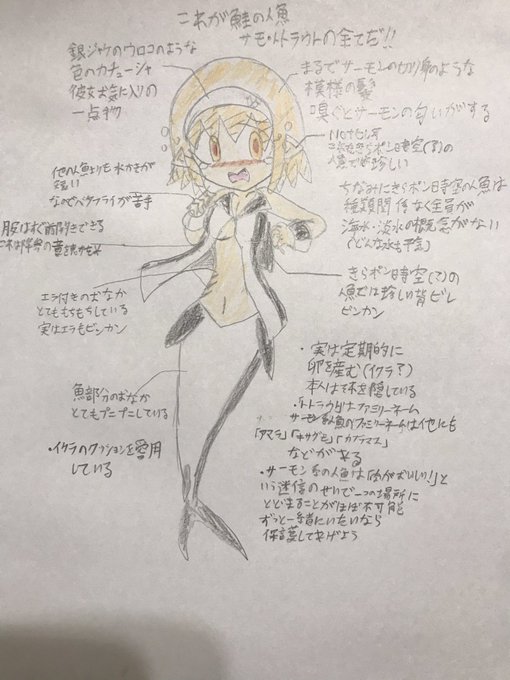 これが鮭の人魚
サモ・トラウトの全てだ!!
銀ジャケのウロコのような
色のカチューシャ
彼女お気に入りの
一点物
まるでサーモンの切り身のような
模様の髪
嗅ぐとサーモンの匂いがする
人魚で珍しい
ちなみにきらポン時空の人魚は
種類関係なく全員が
海水・淡水の概念がない
(どんな水も平気)
他の人魚よりも水かきが
なのでバタフライが苦手
きらポン時空(?)の
人魚では珍しい背ビレ
ビンカン
エラ付きのおなか
とてももちもちしている
実はエラもビンカン
魚部分のおなか
とてもプニプニしている
・イクラのクッションを愛用
している
・実は定期的に
卵を産む(イクラ?)
本人は
・トラウトはファミリーネーム
サーモン系人魚のファミリーネームは他にも
などが
・サーモン系の人魚は「肉がおいしい!」と
いう迷信のせいで一つの場所に
とどまることがほぼ不可能
ずっと一緒にいたいなら
保護してあげよう